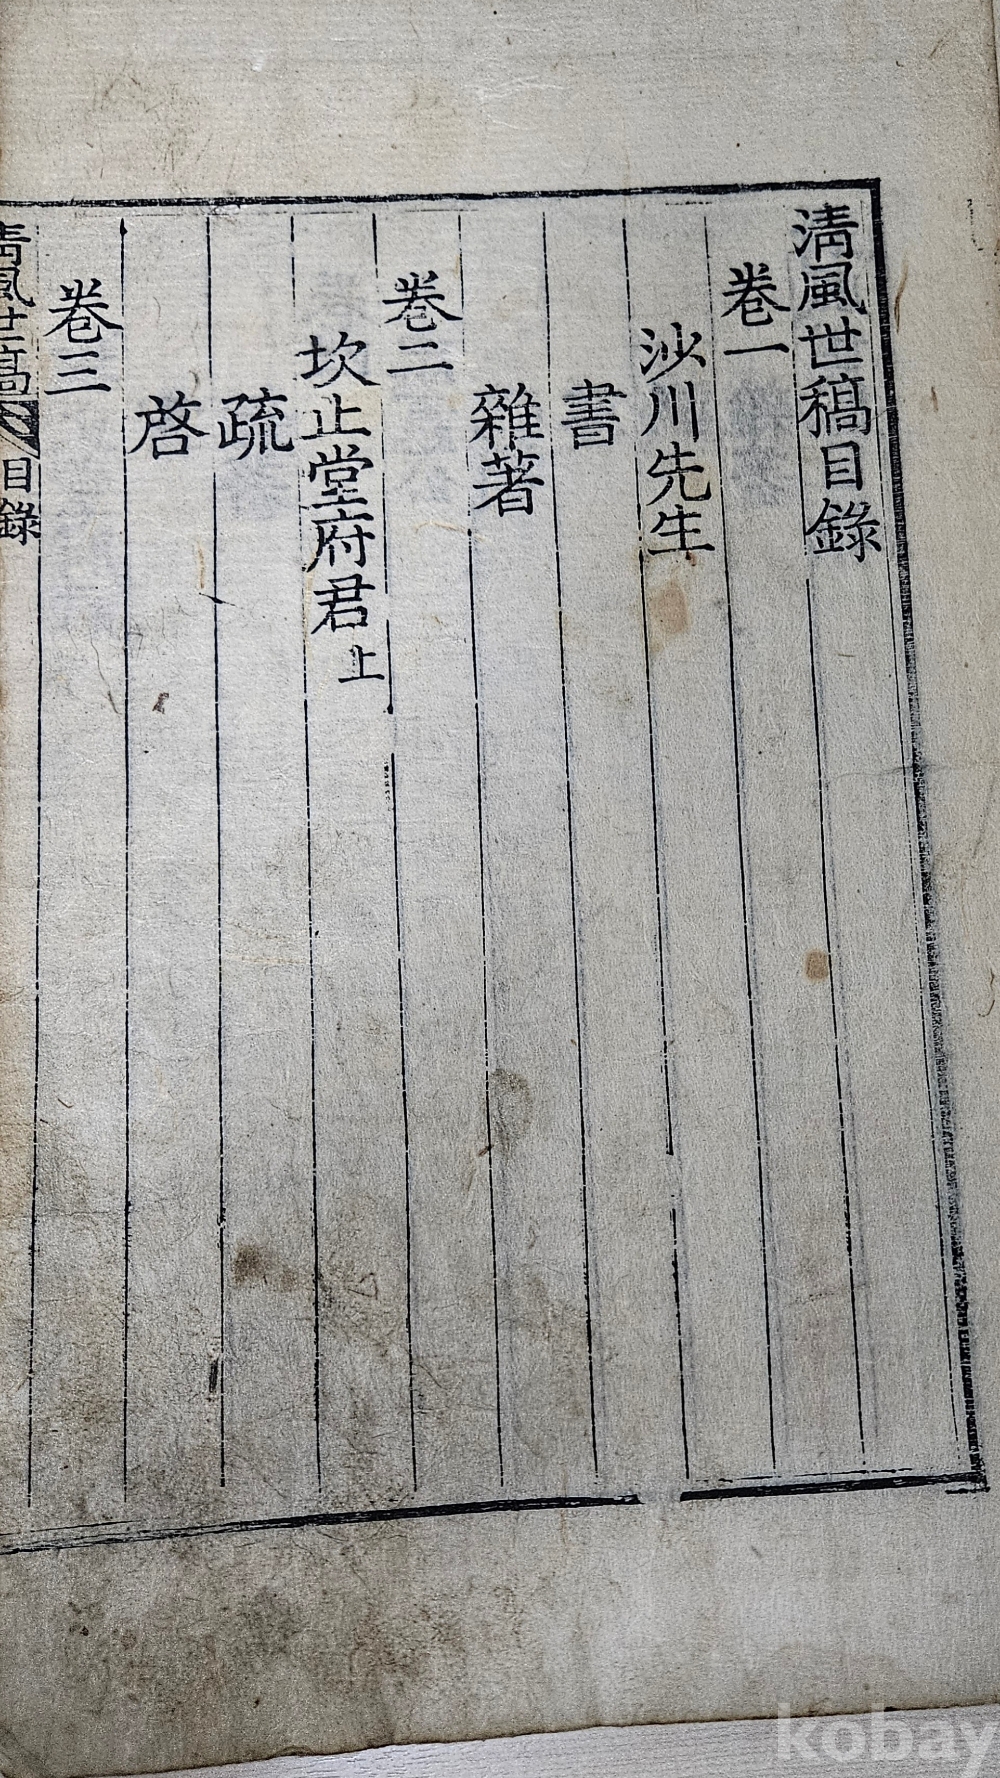 淸風世稿目錄
卷一
沙川先生
書
雜著
卷二
坎止堂府君上
疏
啓
卷三
淸風世稿 目錄
kobay